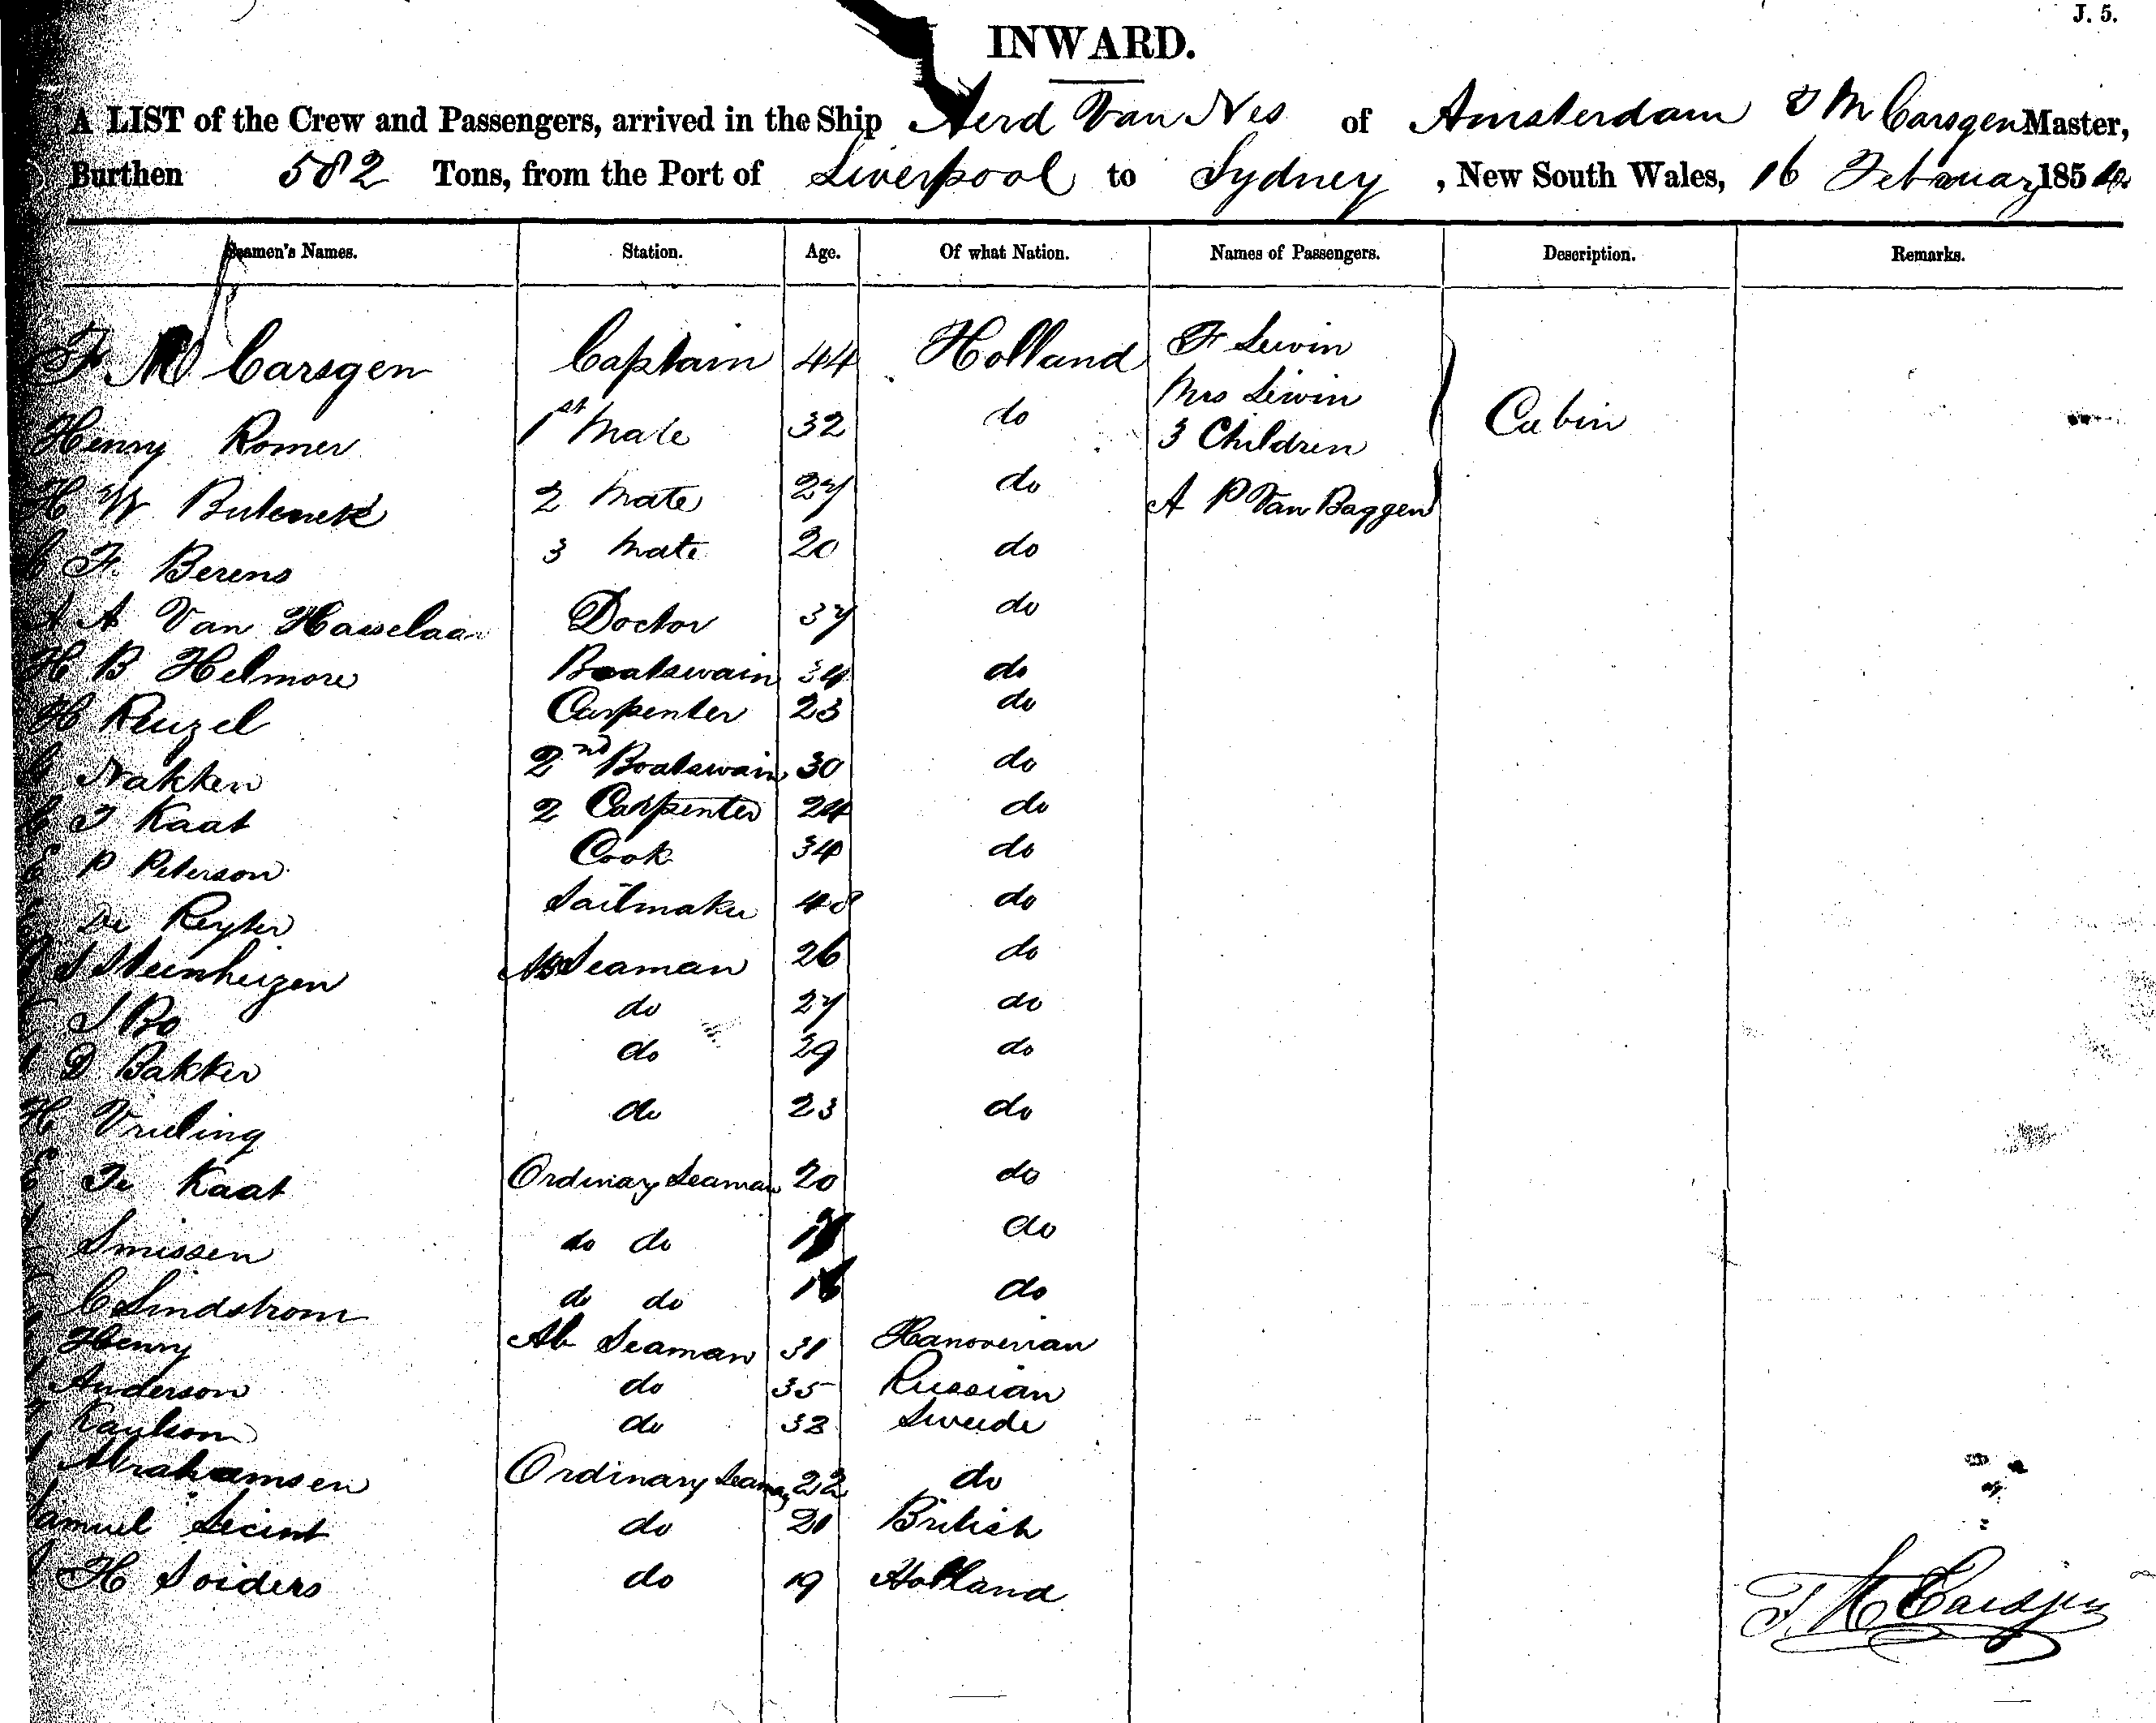 J. 5.
INWARD.
A LIST of the Crew and Passengers, arrived in the Ship Aerd Van Nes of Amsterdam F M Carsgen Master,
Burthen 582 Tons, from the Port of Liverpool to Sydney, New South Wales, 16 February 185
Seamen's Names. Station. Age. Of what Nation. Names of Passengers. Description. Remarks.
F M Carsgen Captain 44 Holland F Lewin
Mrs Lewin
Henry Romer 1st Mate 32 do 3 Children Cabin
H W 2 Mate 27 do A P Van Baggen
F. Berens 3 Mate 20 do
A Van Hasselaar Doctor 37 do
H B Helmore Boatswain 34 do
H Reuzel Carpenter 23 do
Nakken 2nd Boatswain 30 do
J Kaat 2 Carpenter 24 do
E P Peterson Cook 34 do
De Reyter Sailmaker 48 do
J Steenhuizen AB Seaman 26 do
J Bo do 27 do
D Bakker do 29 do
H. Vrieling do 23 do
E Te Kaat Ordinary Seaman 20 do
Smissen do do do
C Lindstrom do do 16 do
Henry Ab Seaman 31 Hanoverian
Anderson do 35 Russian
do 32 Sweede
Abrahamsen Ordinary Seaman 22 do
Samuel do 21 British
H Soiders do 19 Holland
F. M Carsjen